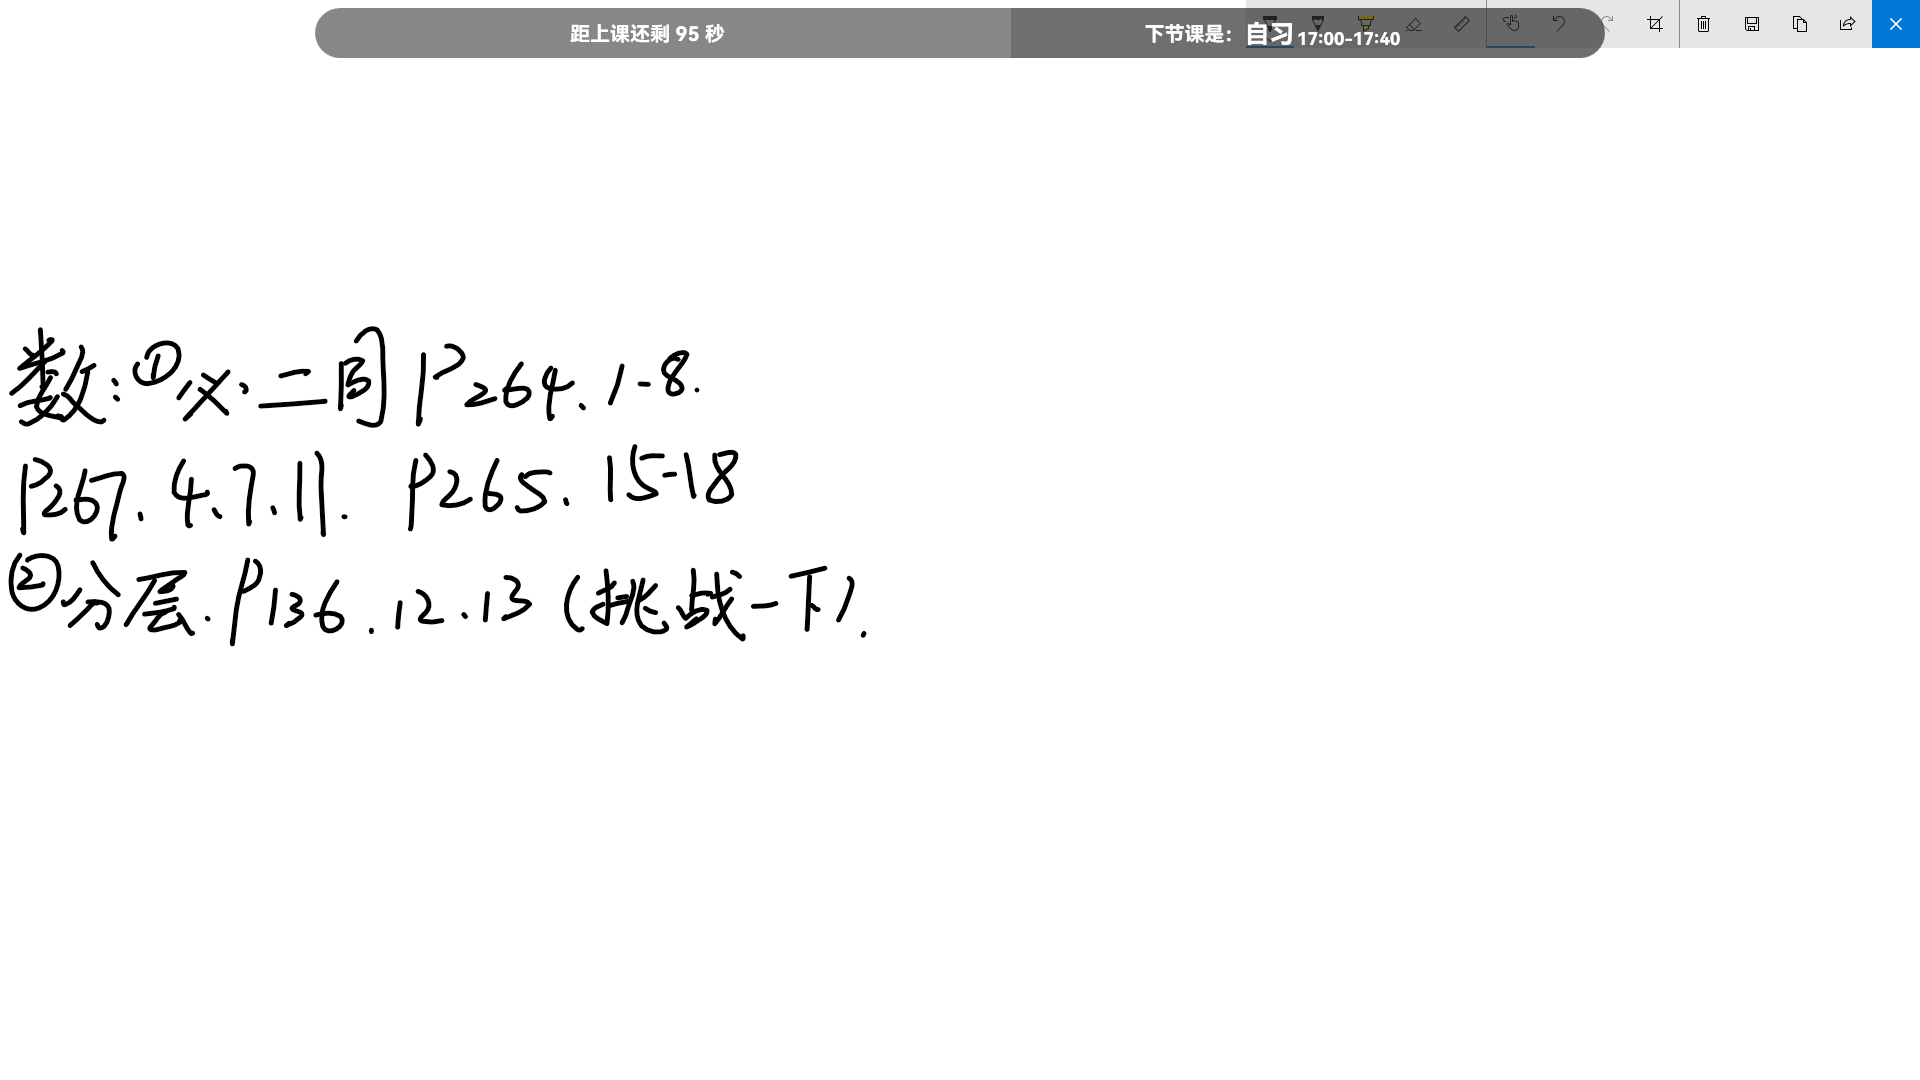 距上课还剩 95 秒 下节课是： 自习 17:00-17:40
数：① 二 P264. 1-8.
P267. 4. 7. 11. P265. 15-18
② 分层. P136. 12. 13 (挑战一下).